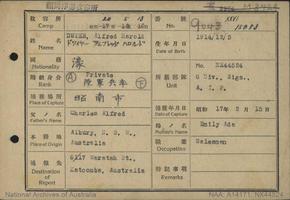 収容所
Camp
姓名
Name
DWYER, Alfred Harold
ドワイヤー アルフレッド ハロルド
生年月日
Date of Birth
1914/12/5
国籍
Nationality
濠
階級身分
Rank
Private
陸軍兵卒
所属部隊
Unit
NX44524
8 Div. Sigs.,
A. I. F.
捕獲場所
Place of Capture
昭南市
捕獲年月日
Date of Capture
昭和17年2月15日
父ノ名
Father's Name
Charles Alfred
母ノ名
Mother's Name
Emily Ada
本籍地
Place of Origin
Albury, N. S. W.,
Australia
職業
Occupation
Salesman
通報先
Destination of Report
Waratah St.,
Katoomba, Australia
特記事項
Remarks
National Archives of Australia
NAA: A14171, NX44524